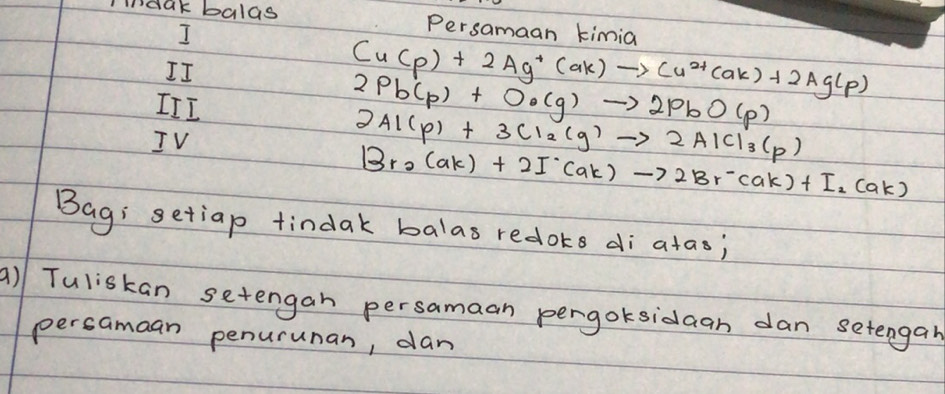 Tindak balas
Persamaan kimia
I
Cu (p) + 2Ag⁺ (ak) → Cu²⁺ (ak) + 2Ag(p)
II
2Pb(p) + O₂(g) → 2PbO (p)
III
2Al(p) + 3Cl₂(g) → 2AlCl₃(p)
IV
Br₂ (ak) + 2I⁻(ak) → 2Br⁻(ak) + I₂ (ak)
Bagi setiap tindak balas redoks di atas;
a) Tuliskan setengah persamaan pengoksidaan dan setengah
persamaan penurunan, dan